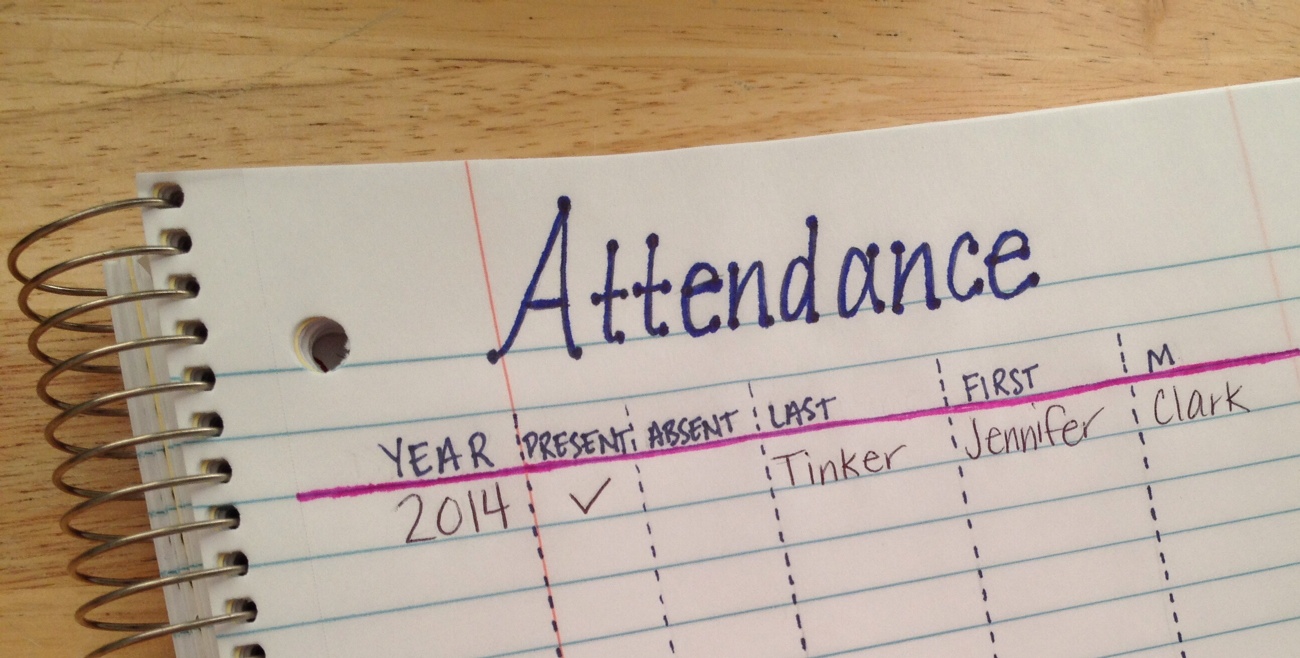 Attendance
YEAR PRESENT ABSENT LAST FIRST M
2014 ✓ Tinker Jennifer Clark